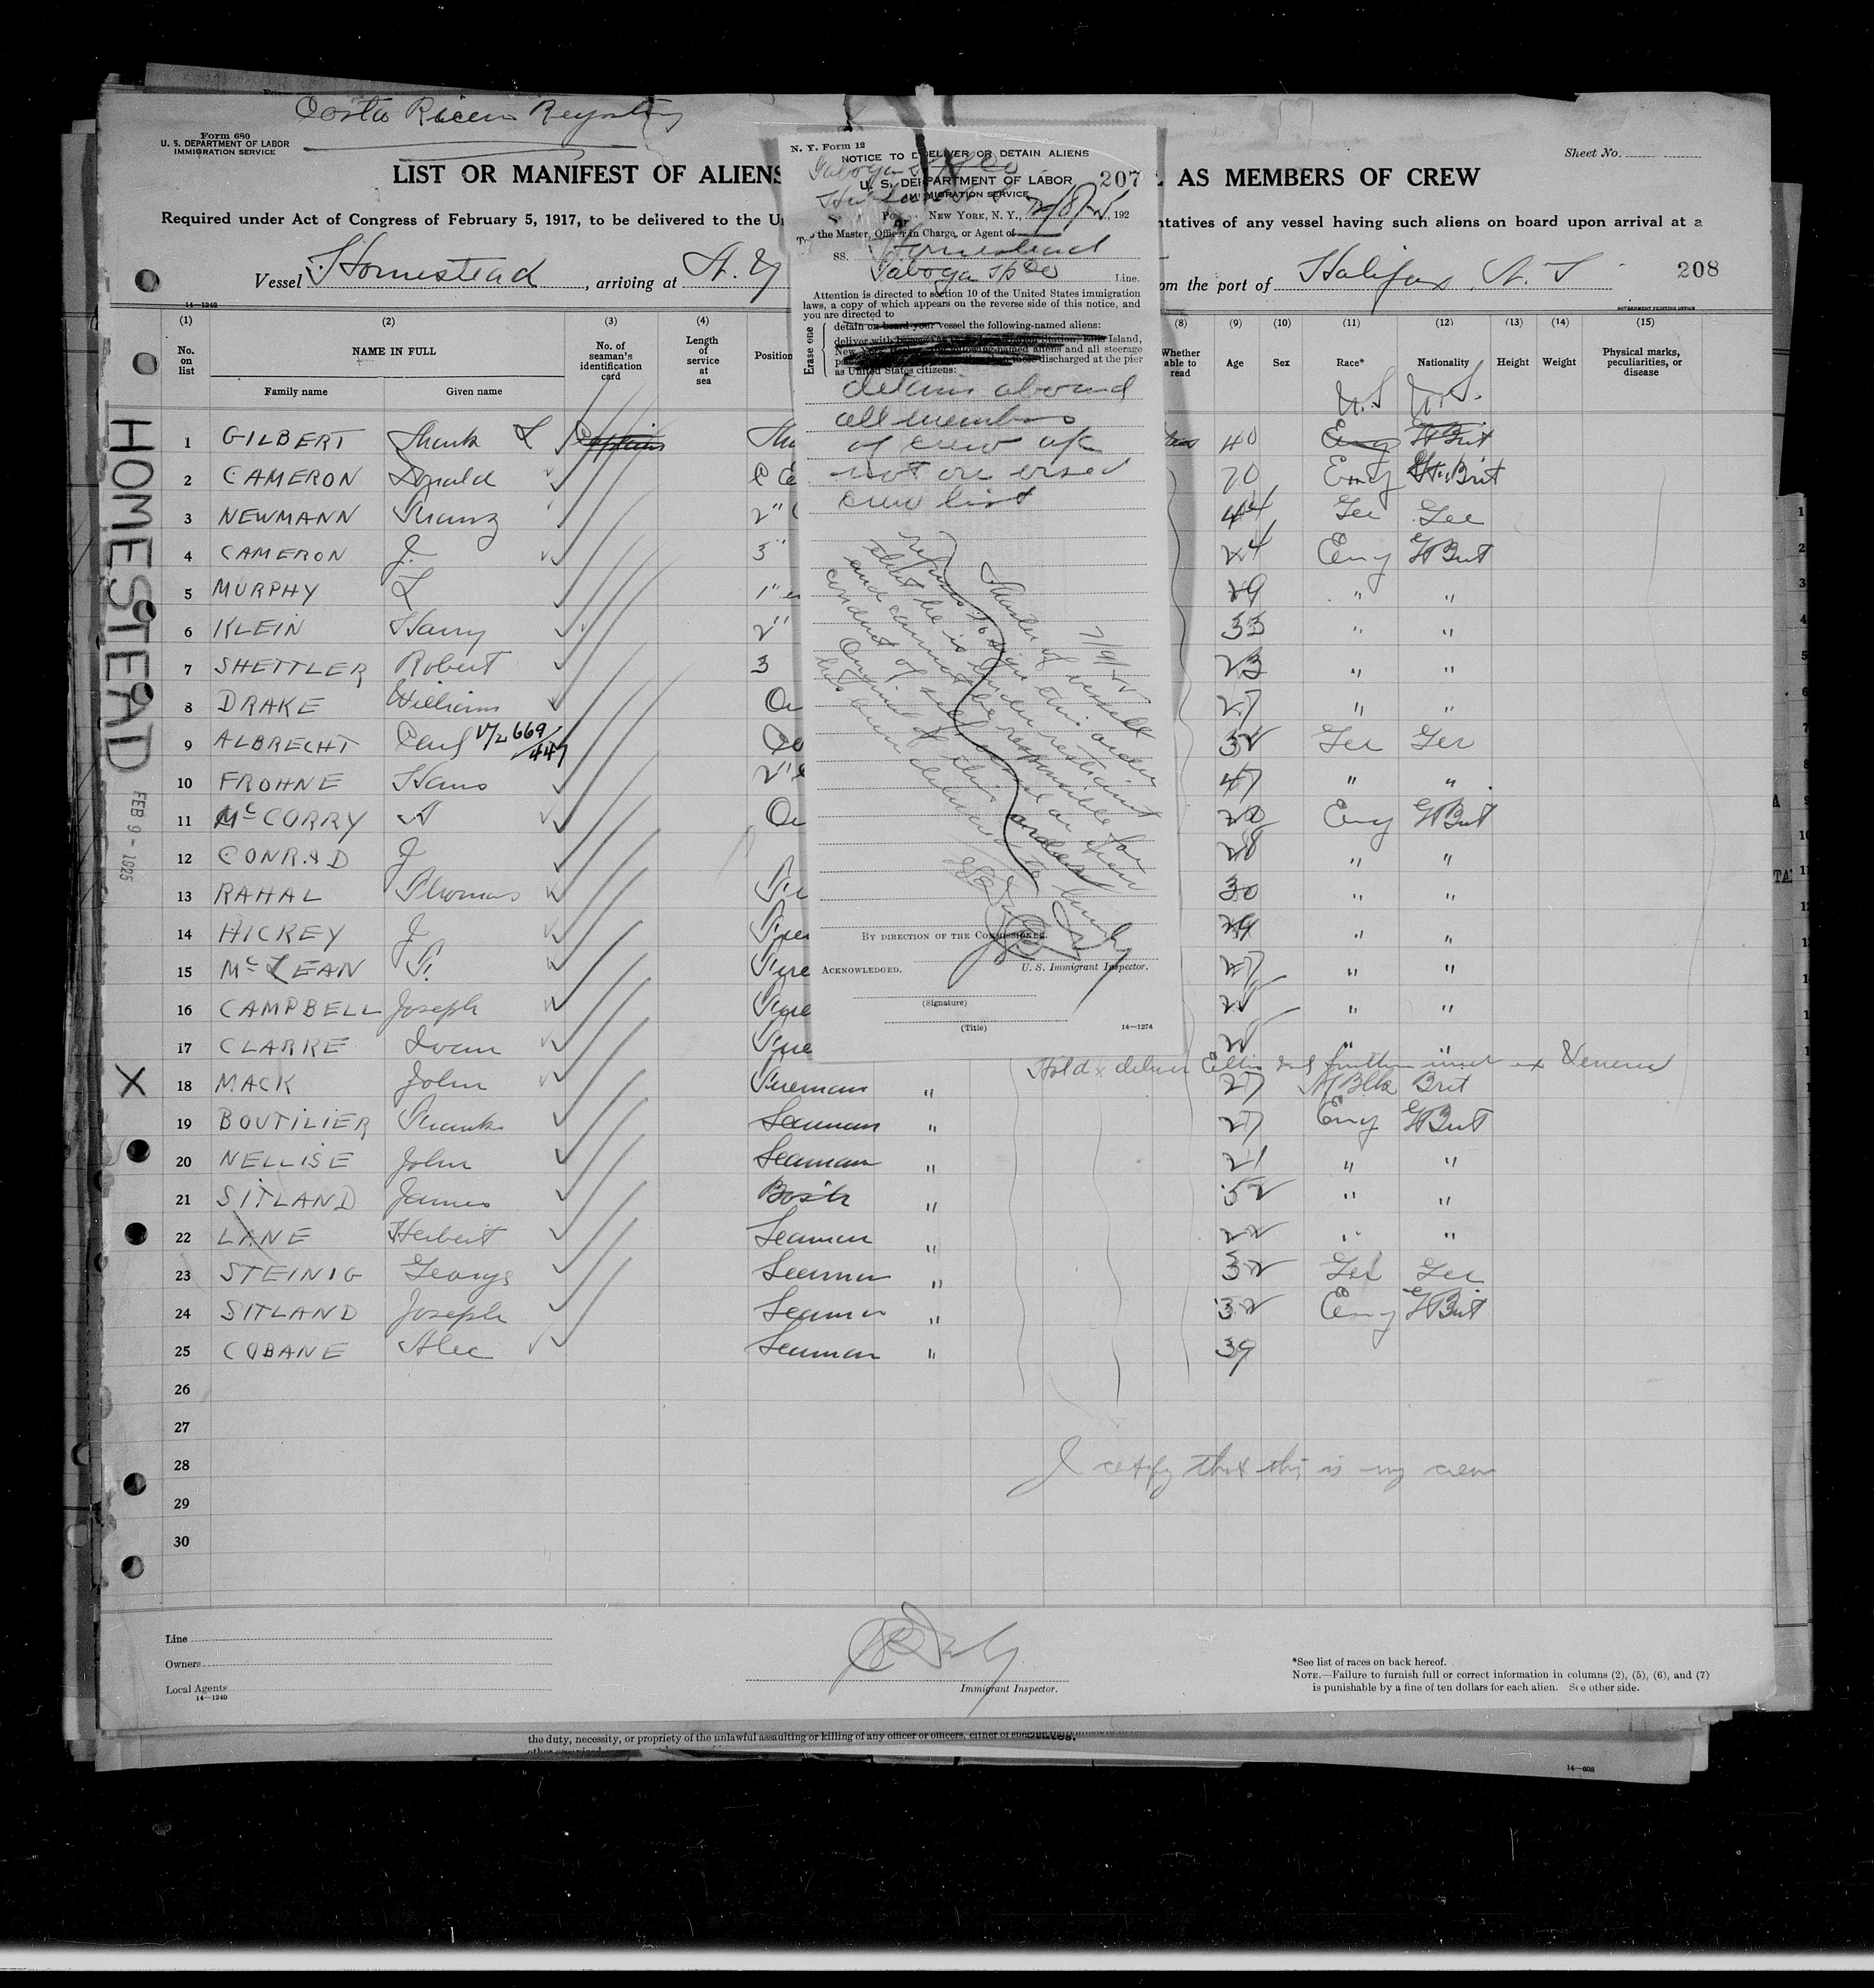 Form 680
U. S. DEPARTMENT OF LABOR
IMMIGRATION SERVICE
Sheet No.
LIST OR MANIFEST OF ALIENS
AS MEMBERS OF CREW
Required under Act of Congress of February 5, 1917, to be delivered to the U
ntatives of any vessel having such aliens on board upon arrival at a
Vessel Homestead, arriving at N. Y
om the port of Halifax N. S
208
14-1240
GOVERNMENT PRINTING OFFICE
N. Y. Form 12
NOTICE TO DELIVER OR DETAIN ALIENS
U. S. DEPARTMENT OF LABOR
207
IMMIGRATION SERVICE
NEW YORK, N. Y., 2/8/25, 192
the Master, Officer in Charge, or Agent of
SS. Homestead
Taboga SS Co Line.
Attention is directed to section 10 of the United States immigration
laws, a copy of which appears on the reverse side of this notice, and
you are directed to
Erase one
detain on board your vessel the following-named aliens:
Island,
aliens and all steerage
discharged at the pier
as United States citizens:
detain aboard
all members
of crew a/c
not on vised
crew list
Master of vessel
refuses to sign this order
and cannot be responsible for
conduct of self or crew
Original of this order
BY DIRECTION OF THE COMMISSIONER.
ACKNOWLEDGED.
U. S. Immigrant Inspector.
(Signature)
(Title)
14-1274
(1) (2) (3) (4) (8) (9) (10) (11) (12) (13) (14) (15)
No. on list
NAME IN FULL
Family name
Given name
No. of seaman's identification card
Length of service at sea
Position
Whether able to read
Age
Sex
Race*
Nationality
Height
Weight
Physical marks, peculiarities, or disease
U.S U.S.
HOMESTEAD
FEB 9 - 1925
1 GILBERT Frank L Captain 40 Eng Gt Brit
2 CAMERON Donald 70 Eng Gt Brit
3 NEWMANN Franz 2" 44 Ger Ger
4 CAMERON J. 3" 24 Eng Gt Brit
5 MURPHY L 1" 29 " "
6 KLEIN Harry 2" 33 " "
7 SHETTLER Robert 3 23 " "
8 DRAKE William 27 " "
9 ALBRECHT Carl 669/447 32 Ger Ger
10 FROHNE Hans 47 " "
11 McCORRY A Eng Gt Brit
12 CONRAD J 28 " "
13 RAHAL Thomas 30 " "
14 HICKEY J Fire 29 " "
15 McLEAN F. Fire 27 " "
16 CAMPBELL Joseph Fire " "
17 CLARKE Ivan Fire " "
Hold & deliver Ellis Isd
X 18 MACK John Fireman " 27 Af Blk Brit
19 BOUTILIER Frank Seaman " 27 Eng Gt Brit
20 NELLISE John Seaman " 21 " "
21 SITLAND James Bos'n " 52 " "
22 LANE Herbert Seaman " 22 " "
23 STEINIG George Seaman " 32 Ger Ger
24 SITLAND Joseph Seaman " 32 Eng Gt Brit
25 COBANE Alec Seaman " 39
26
27
28
I certify that this is my crew
29
30
Line
Owners
Local Agents
14-1240
Immigrant Inspector.
*See list of races on back hereof.
NOTE.—Failure to furnish full or correct information in columns (2), (5), (6), and (7)
is punishable by a fine of ten dollars for each alien. See other side.
the duty, necessity, or propriety of the unlawful assaulting or killing of any officer or officers, either of
14-608